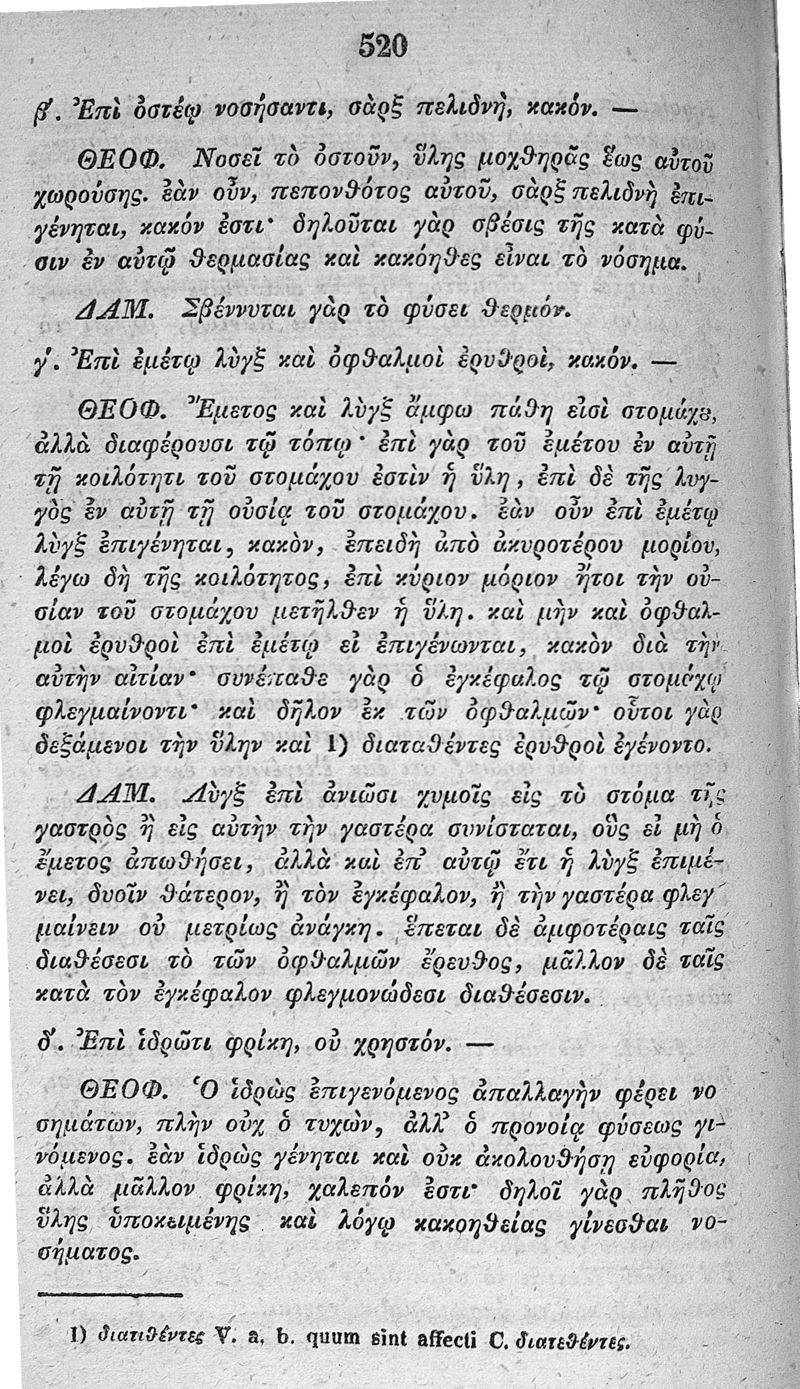 520
β'. Ἐπὶ ὀστέῳ νοσήσαντι, σὰρξ πελιδνὴ, κακόν. —
ΘΕΟΦ. Νοσεῖ τὸ ὀστοῦν, ὕλης μοχθηρᾶς ἕως αὐτοῦ
χωρούσης. ἐὰν οὖν, πεπονθότος αὐτοῦ, σὰρξ πελιδνὴ ἐπι-
γένηται, κακόν ἐστι· δηλοῦται γὰρ σβέσις τῆς κατὰ φύ-
σιν ἐν αὐτῷ θερμασίας καὶ κακόηθες εἶναι τὸ νόσημα.
ΔΑΜ. Σβέννυται γὰρ τὸ φύσει θερμόν.
γ'. Ἐπὶ ἐμέτῳ λὺγξ καὶ ὀφθαλμοὶ ἐρυθροὶ, κακόν. —
ΘΕΟΦ. Ἔμετος καὶ λὺγξ ἄμφω πάθη εἰσὶ στομάχȣ,
ἀλλὰ διαφέρουσι τῷ τόπῳ· ἐπὶ γὰρ τοῦ ἐμέτου ἐν αὐτῇ
τῇ κοιλότητι τοῦ στομάχου ἐστὶν ἡ ὕλη, ἐπὶ δὲ τῆς λυγ-
γὸς ἐν αὐτῇ τῇ οὐσίᾳ τοῦ στομάχου. ἐὰν οὖν ἐπὶ ἐμέτῳ
λὺγξ ἐπιγένηται, κακὸν, ἐπειδὴ ἀπὸ ἀκυροτέρου μορίου,
λέγω δὴ τῆς κοιλότητος, ἐπὶ κύριον μόριον ἤτοι τὴν οὐ-
σίαν τοῦ στομάχου μετῆλθεν ἡ ὕλη. καὶ μὴν καὶ ὀφθαλ-
μοὶ ἐρυθροὶ ἐπὶ ἐμέτῳ εἰ ἐπιγένωνται, κακὸν διὰ τὴν
αὐτὴν αἰτίαν· συνέπαθε γὰρ ὁ ἐγκέφαλος τῷ στομάχῳ
φλεγμαίνοντι· καὶ δῆλον ἐκ τῶν ὀφθαλμῶν· οὗτοι γὰρ
δεξάμενοι τὴν ὕλην καὶ 1) διαταθέντες ἐρυθροὶ ἐγένοντο.
ΔΑΜ. Λὺγξ ἐπὶ ἀνιῶσι χυμοῖς εἰς τὸ στόμα τῆς
γαστρὸς ἢ εἰς αὐτὴν τὴν γαστέρα συνίσταται, οὓς εἰ μὴ ὁ
ἔμετος ἀπωθήσει, ἀλλὰ καὶ ἐπ' αὐτῷ ἔτι ἡ λὺγξ ἐπιμέ-
νει, δυοῖν θάτερον, ἢ τὸν ἐγκέφαλον, ἢ τὴν γαστέρα φλεγ-
μαίνειν οὐ μετρίως ἀνάγκη. ἕπεται δὲ ἀμφοτέραις ταῖς
διαθέσεσι τὸ τῶν ὀφθαλμῶν ἔρευθος, μᾶλλον δὲ ταῖς
κατὰ τὸν ἐγκέφαλον φλεγμονώδεσι διαθέσεσιν.
δ'. Ἐπὶ ἱδρῶτι φρίκη, οὐ χρηστόν. —
ΘΕΟΦ. Ὁ ἱδρὼς ἐπιγενόμενος ἀπαλλαγὴν φέρει νο
σημάτων, πλὴν οὐχ ὁ τυχὼν, ἀλλ' ὁ προνοίᾳ φύσεως γι-
νόμενος. ἐὰν ἱδρὼς γένηται καὶ οὐκ ἀκολουθήσῃ εὐφορία,
ἀλλὰ μᾶλλον φρίκη, χαλεπόν ἐστι· δηλοῖ γὰρ πλῆθος
ὕλης ὑποκειμένης καὶ λόγῳ κακοηθείας γίνεσθαι νο-
σήματος.
1) διατιθέντες V. a. b. quum sint affecti C. διατεθέντες.